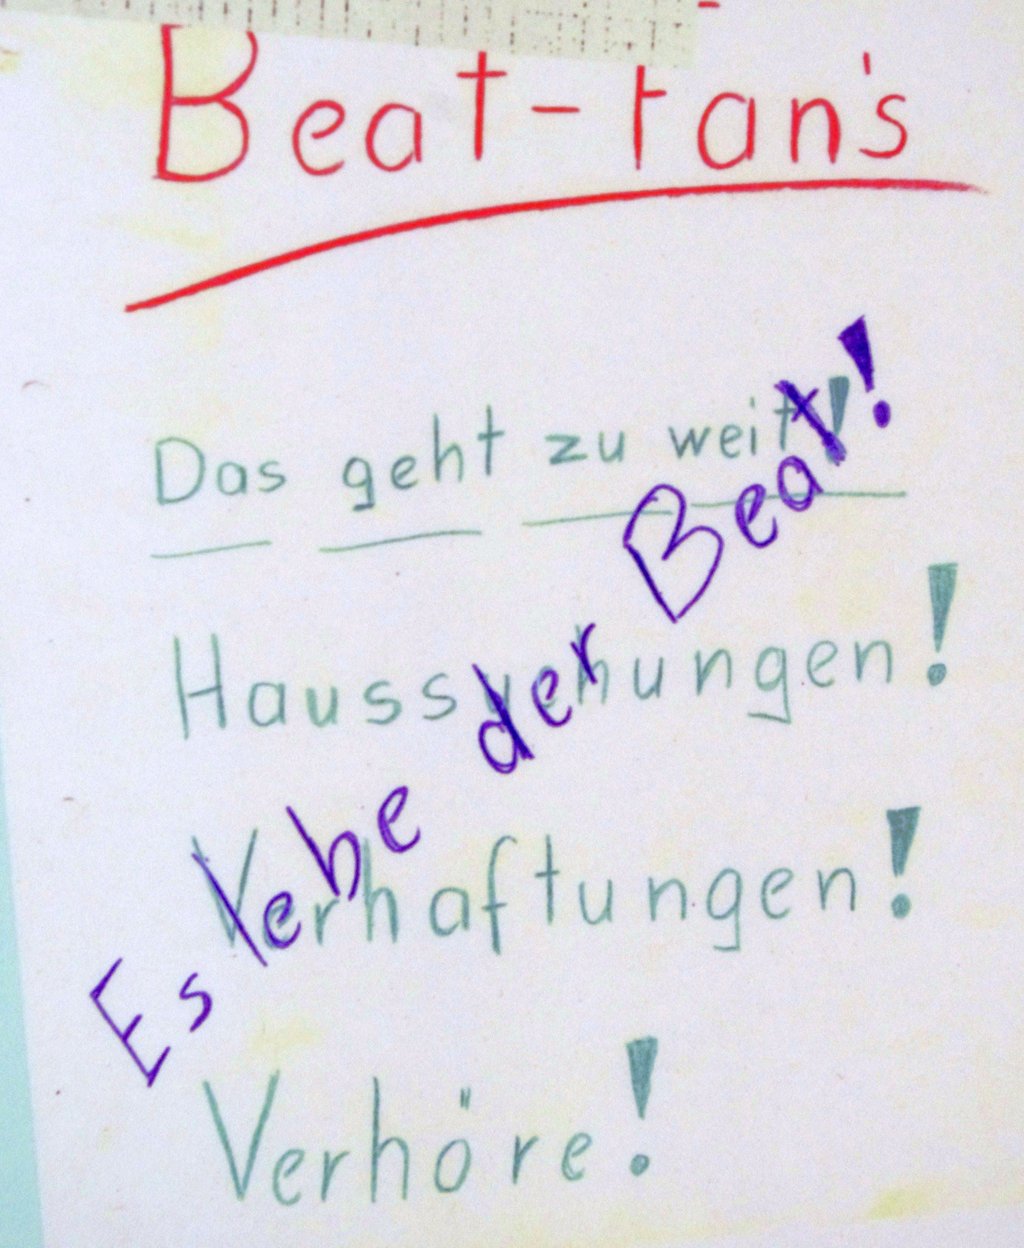 Beat-tan's
Das geht zu weit!
Haussuchungen!
Verhaftungen!
Verhöre!
Es lebe der Beat!